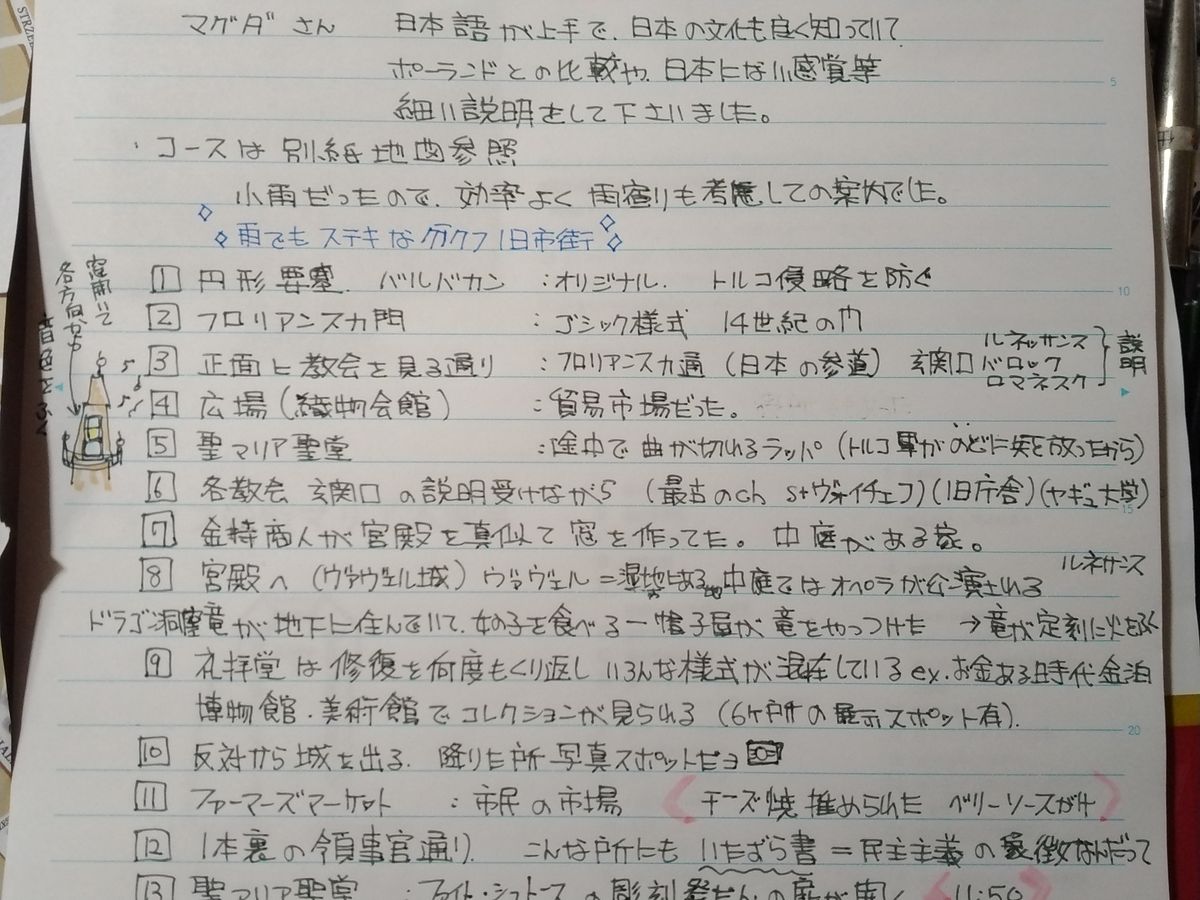 マグダさん 日本語が上手で、日本の文化も良く知っていて
ポーランドとの比較や、日本にない感覚等
細い説明をして下さいました。
・コースは別紙地図参照
小雨だったので、効率よく雨宿りも考慮しての案内でした。
雨でもステキなクラクフ旧市街
窓開いて
各方向から
音色をふく
1 円形要塞. バルバカン :オリジナル. トルコ侵略を防ぐ
2 フロリアンスカ門 :ゴシック様式 14世紀の門
3 正面に教会を見る通り :フロリアンスカ通(日本の参道) 玄関口 ルネッサンス バロック ロマネスク 説明
4 広場(織物会館) :貿易市場だった。
5 聖マリア聖堂 :途中で曲が切れるラッパ(トルコ軍がのどに矢を放ったから)
6 各教会 玄関口の説明受けながら (最古のch st ヴォイチェフ)(旧庁舎)(ヤギェ大学)
7 金持商人が宮殿を真似て窓を作ってた。中庭がある家。
8 宮殿へ(ヴァヴェル城)ヴァヴェル=湿地にある 中庭ではオペラが公演される
ルネサンス
ドラゴン洞窟 竜が地下に住んでいて、女の子を食べる一帽子屋が竜をやっつけた →竜が定刻に火をふく
9 礼拝堂は修復を何度もくり返しいろんな様式が混在している ex.お金ある時代金泊
博物館・美術館でコレクションが見られる(6ヶ所の展示スポット有).
10 反対から城を出る. 降りた所写真スポットだヨ
11 ファーマーズマーケット :市民の市場 (チーズ焼 推められた ベリーソースがけ)
12 1本裏の領事官通り. こんな所にも いたずら書=民主主義の象徴なんだって
13 聖マリア聖堂 :ファイト・シュトースの彫刻祭だんの扉が開く 11:50
STRZE
5
10
15
20